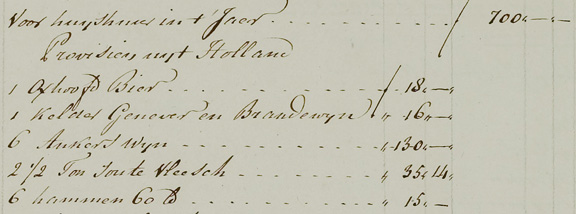 Voor huyshuur in t' Jaer - - - - - - - - - ƒ 700„—„—
Provisien uyt Holland
1 Oxhoofd Bier - - - - - - - - - ƒ 18„—„
1 Kelder Genever en Brandewyn ƒ „ 16„—„
6 Ankers Wyn - - - - - - - - - „ 130„—„
2 1/2 Ton Soute Vleesch - - - - - - - „ 35„14„
6 hammen 60 lb - - - - - - - - - „ 15„—